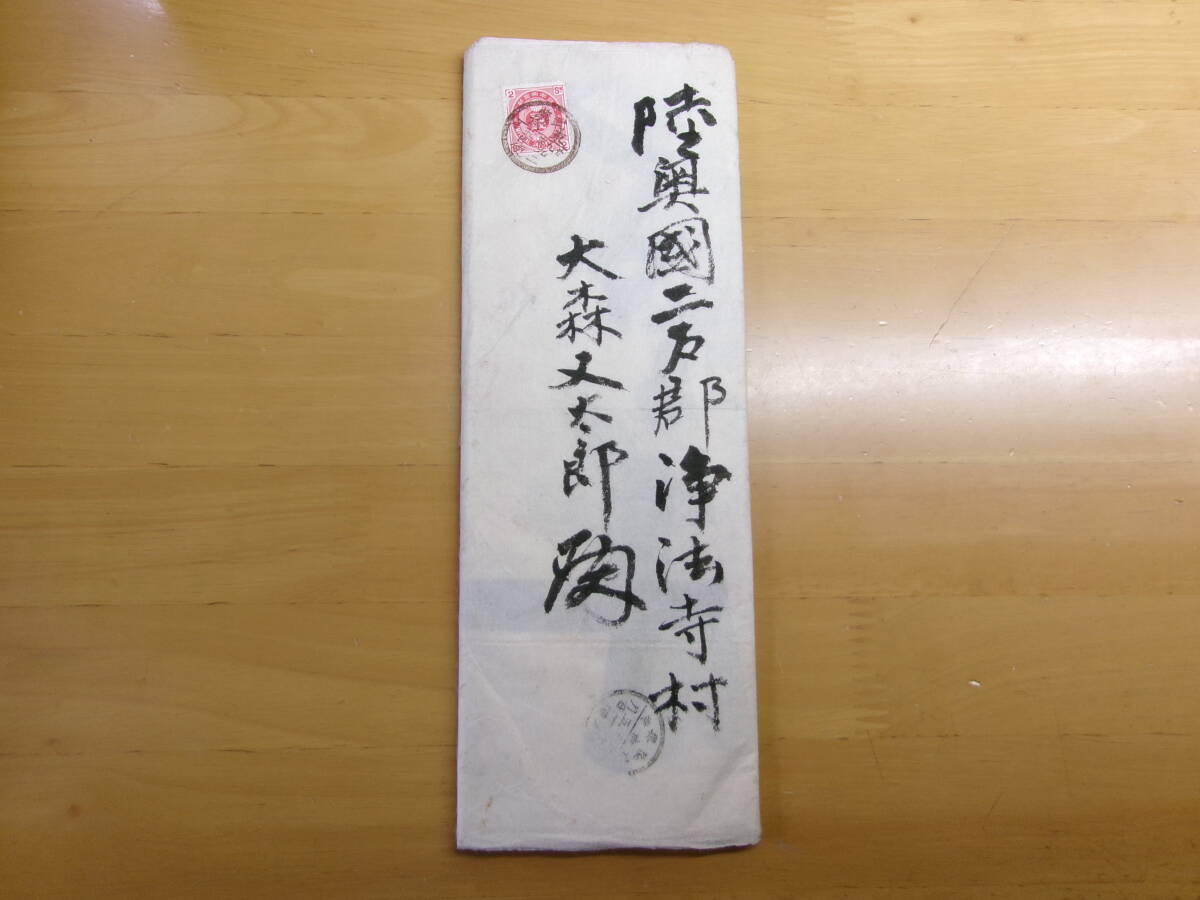 陸奥國二戸郡浄法寺村
大森又太郎殿
2 Sn